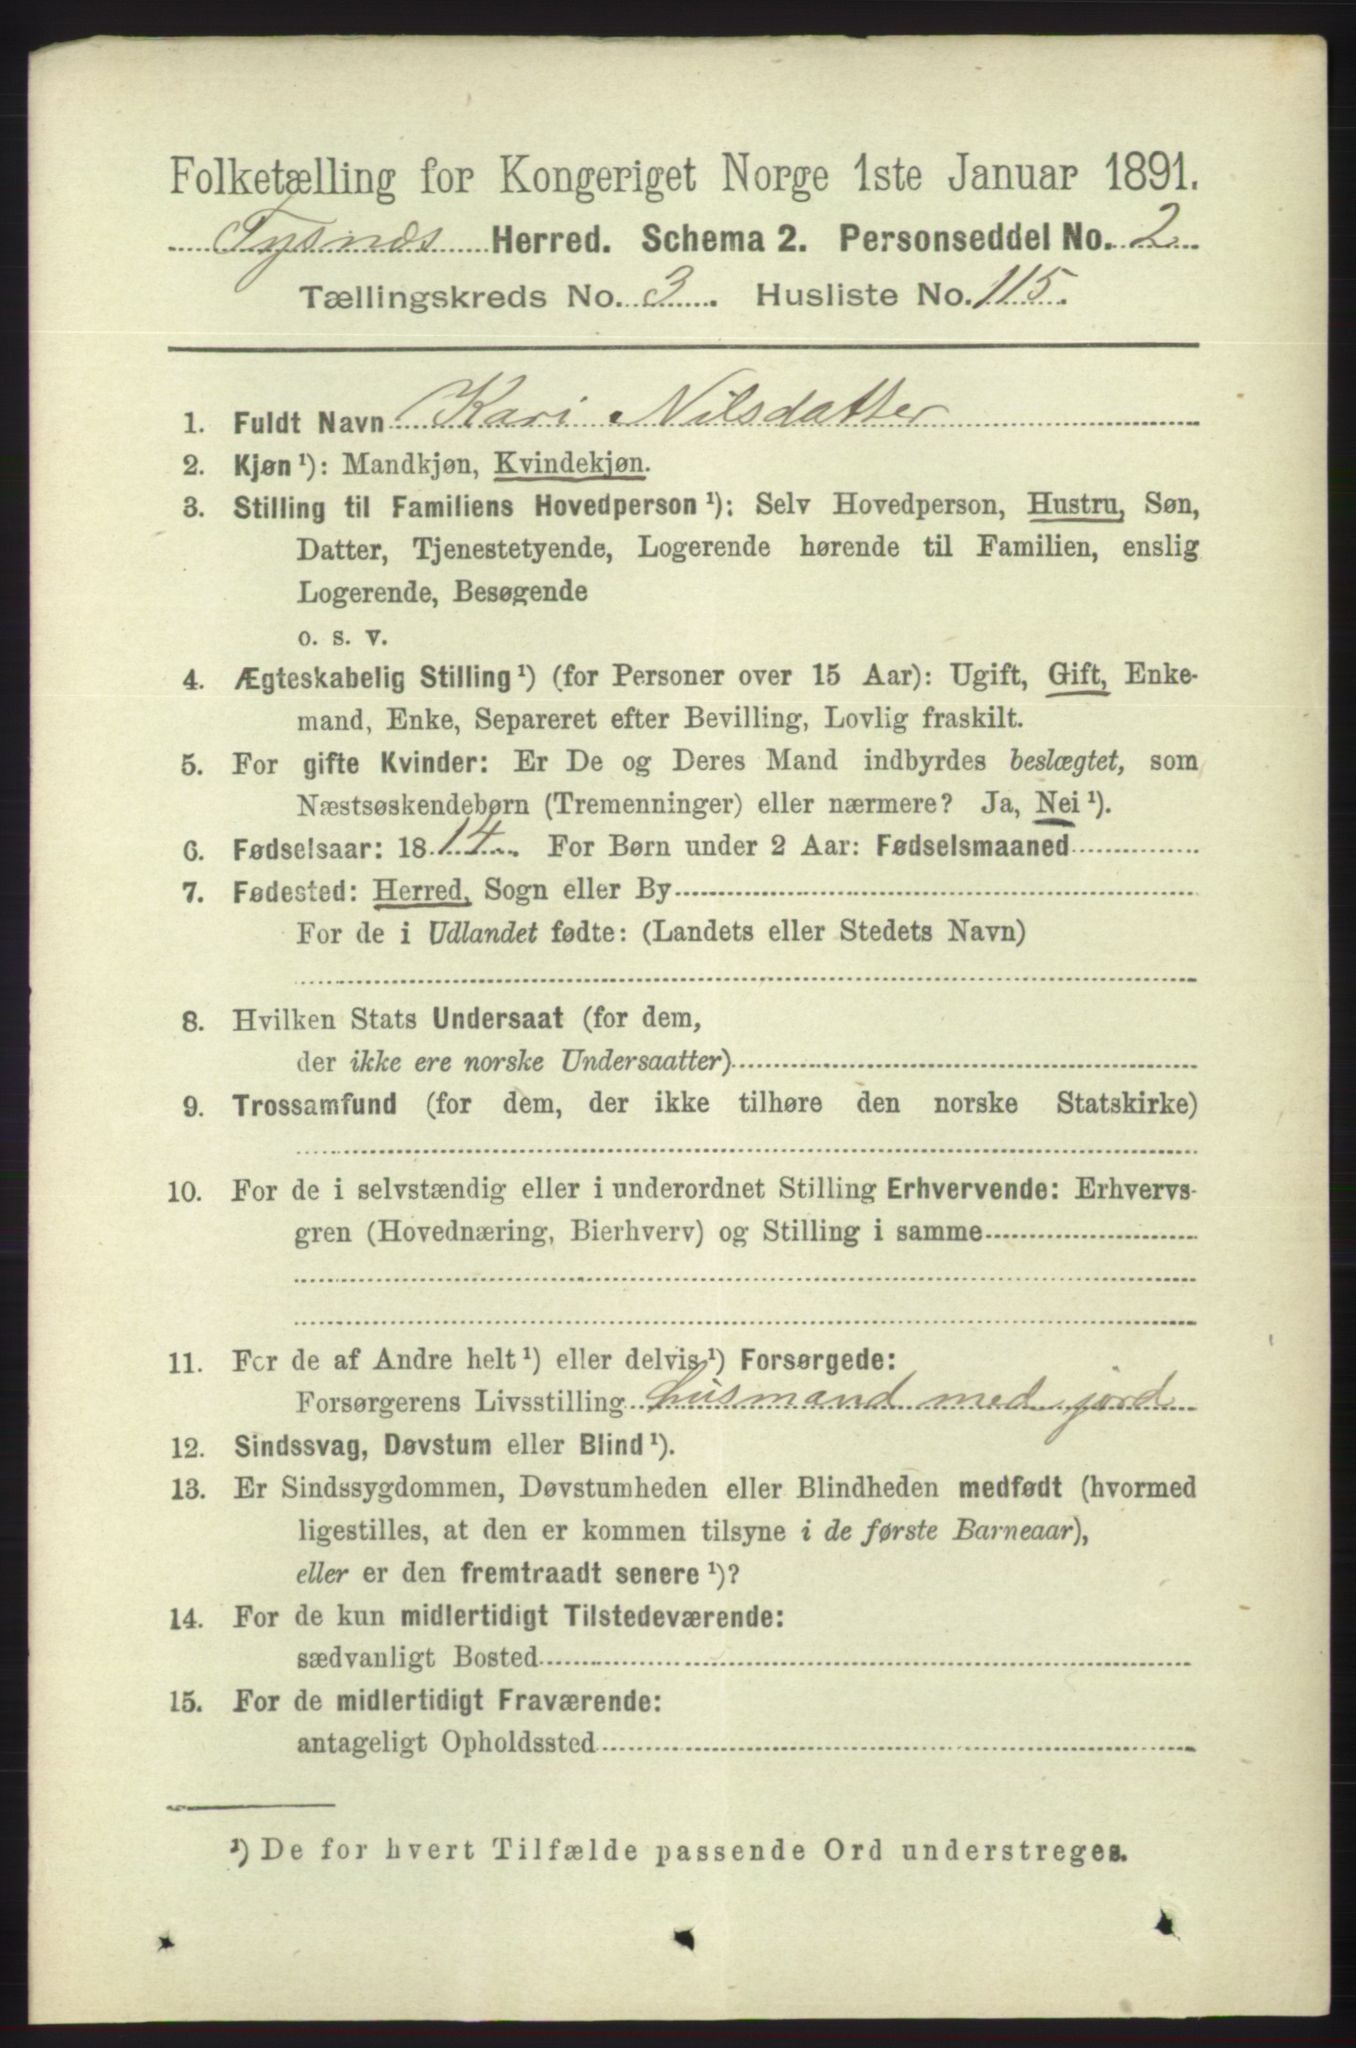 Folketælling for Kongeriget Norge 1ste Januar 1891.
Tysnæs Herred. Schema 2. Personseddel No. 2
Tællingskreds No. 3. Husliste No. 115.
1. Fuldt Navn Kari Nilsdatter
2. Kjøn ¹): Mandkjøn, Kvindekjøn.
3. Stilling til Familiens Hovedperson ¹): Selv Hovedperson, Hustru, Søn,
Datter, Tjenestetyende, Logerende hørende til Familien, enslig
Logerende, Besøgende
o. s. v.
4. Ægteskabelig Stilling ¹) (for Personer over 15 Aar): Ugift, Gift, Enke-
mand, Enke, Separeret efter Bevilling, Lovlig fraskilt.
5. For gifte Kvinder: Er De og Deres Mand indbyrdes beslægtet, som
Næstsøskendebørn (Tremenninger) eller nærmere? Ja, Nei ¹).
6. Fødselsaar: 1814. For Børn under 2 Aar: Fødselsmaaned
7. Fødested: Herred, Sogn eller By
For de i Udlandet fødte: (Landets eller Stedets Navn)
8. Hvilken Stats Undersaat (for dem,
der ikke ere norske Undersaatter)
9. Trossamfund (for dem, der ikke tilhøre den norske Statskirke)
10. For de i selvstændig eller i underordnet Stilling Erhvervende: Erhvervs-
gren (Hovednæring, Bierhverv) og Stilling i samme
11. For de af Andre helt ¹) eller delvis ¹) Forsørgede:
Forsørgerens Livsstilling husmand med jord
12. Sindssvag, Døvstum eller Blind ¹).
13. Er Sindssygdommen, Døvstumheden eller Blindheden medfødt (hvormed
ligestilles, at den er kommen tilsyne i de første Barneaar),
eller er den fremtraadt senere ¹)?
14. For de kun midlertidigt Tilstedeværende:
sædvanligt Bosted
15. For de midlertidigt Fraværende:
antageligt Opholdssted
¹) De for hvert Tilfælde passende Ord understreges.